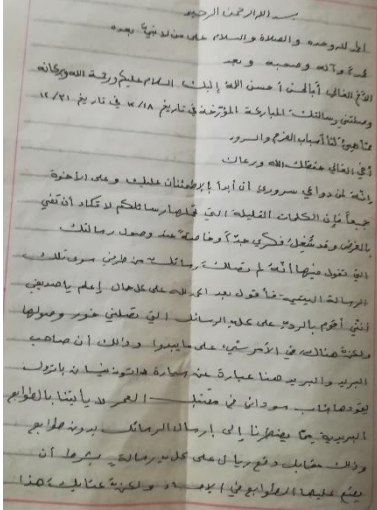 بسم الله الرحمن الرحيم
الحمد لله وحده والصلاة والسلام على من لا نبي بعده
محمد وآله وصحبه وبعد
الأخ الغالي أبا الحسن أحسن الله إليك السلام عليكم ورحمة الله وبركاته
وصلتني رسالتك المباركة المؤرخة في تاريخ ١٨/ في تاريخ ٣١/١٢
لنا أسباب الفرح والسرور
أخي الغالي حفظك الله ورعاك
وإنه لمن دواعي سروري أن أبدأ بالاطمئنان عليك وعلى الأخوة
جميعاً فإن الكلمات القليلة التي رسائلكم لا تكاد أن تفي
بالغرض وقد شُغِلَ فكري جداً وخاصة عند وصول رسالتك
التي تقول فيها أنه لم تصلك رسائلك من طرفي سوى تلك
الرسالة اليتيمة فأقول بعد الحمد لله على كل حال إعلم يا صديقي
أنني أقوم بالرد على كل الرسائل التي تصلني فور وصولها
ولكن هنالك في الأمر شيء على ما يبدوا وذلك أن صاحب
البريد والبريد هنا عبارة عن سيارة
يقودها شاب سوداني في مقتبل العمر لا يأتينا بالطوابع
البريدية مما يضطرنا إلى إرسال الرسائل بدون طوابع
وذلك مقابل دفع ريال على كل رسالة بشرط أن
يضع عليها الطوابع في ولكن هذا